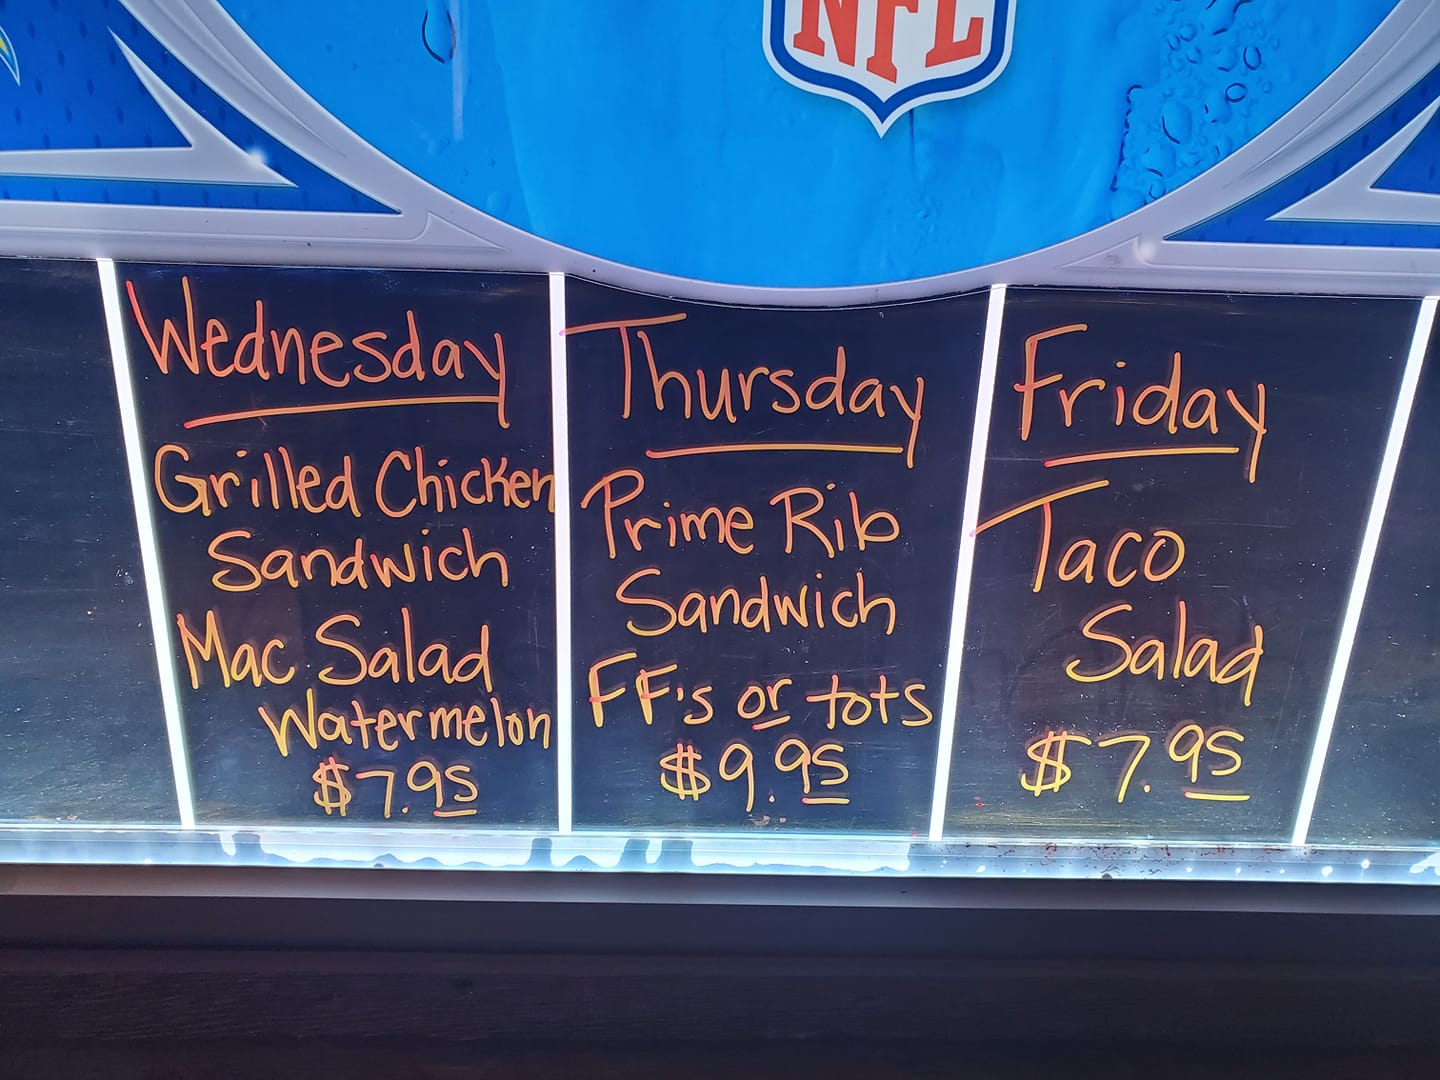 NFL
Wednesday
Grilled Chicken
Sandwich
Mac Salad
Watermelon
$7.95
Thursday
Prime Rib
Sandwich
FF's or tots
$9.95
Friday
Taco
Salad
$7.95